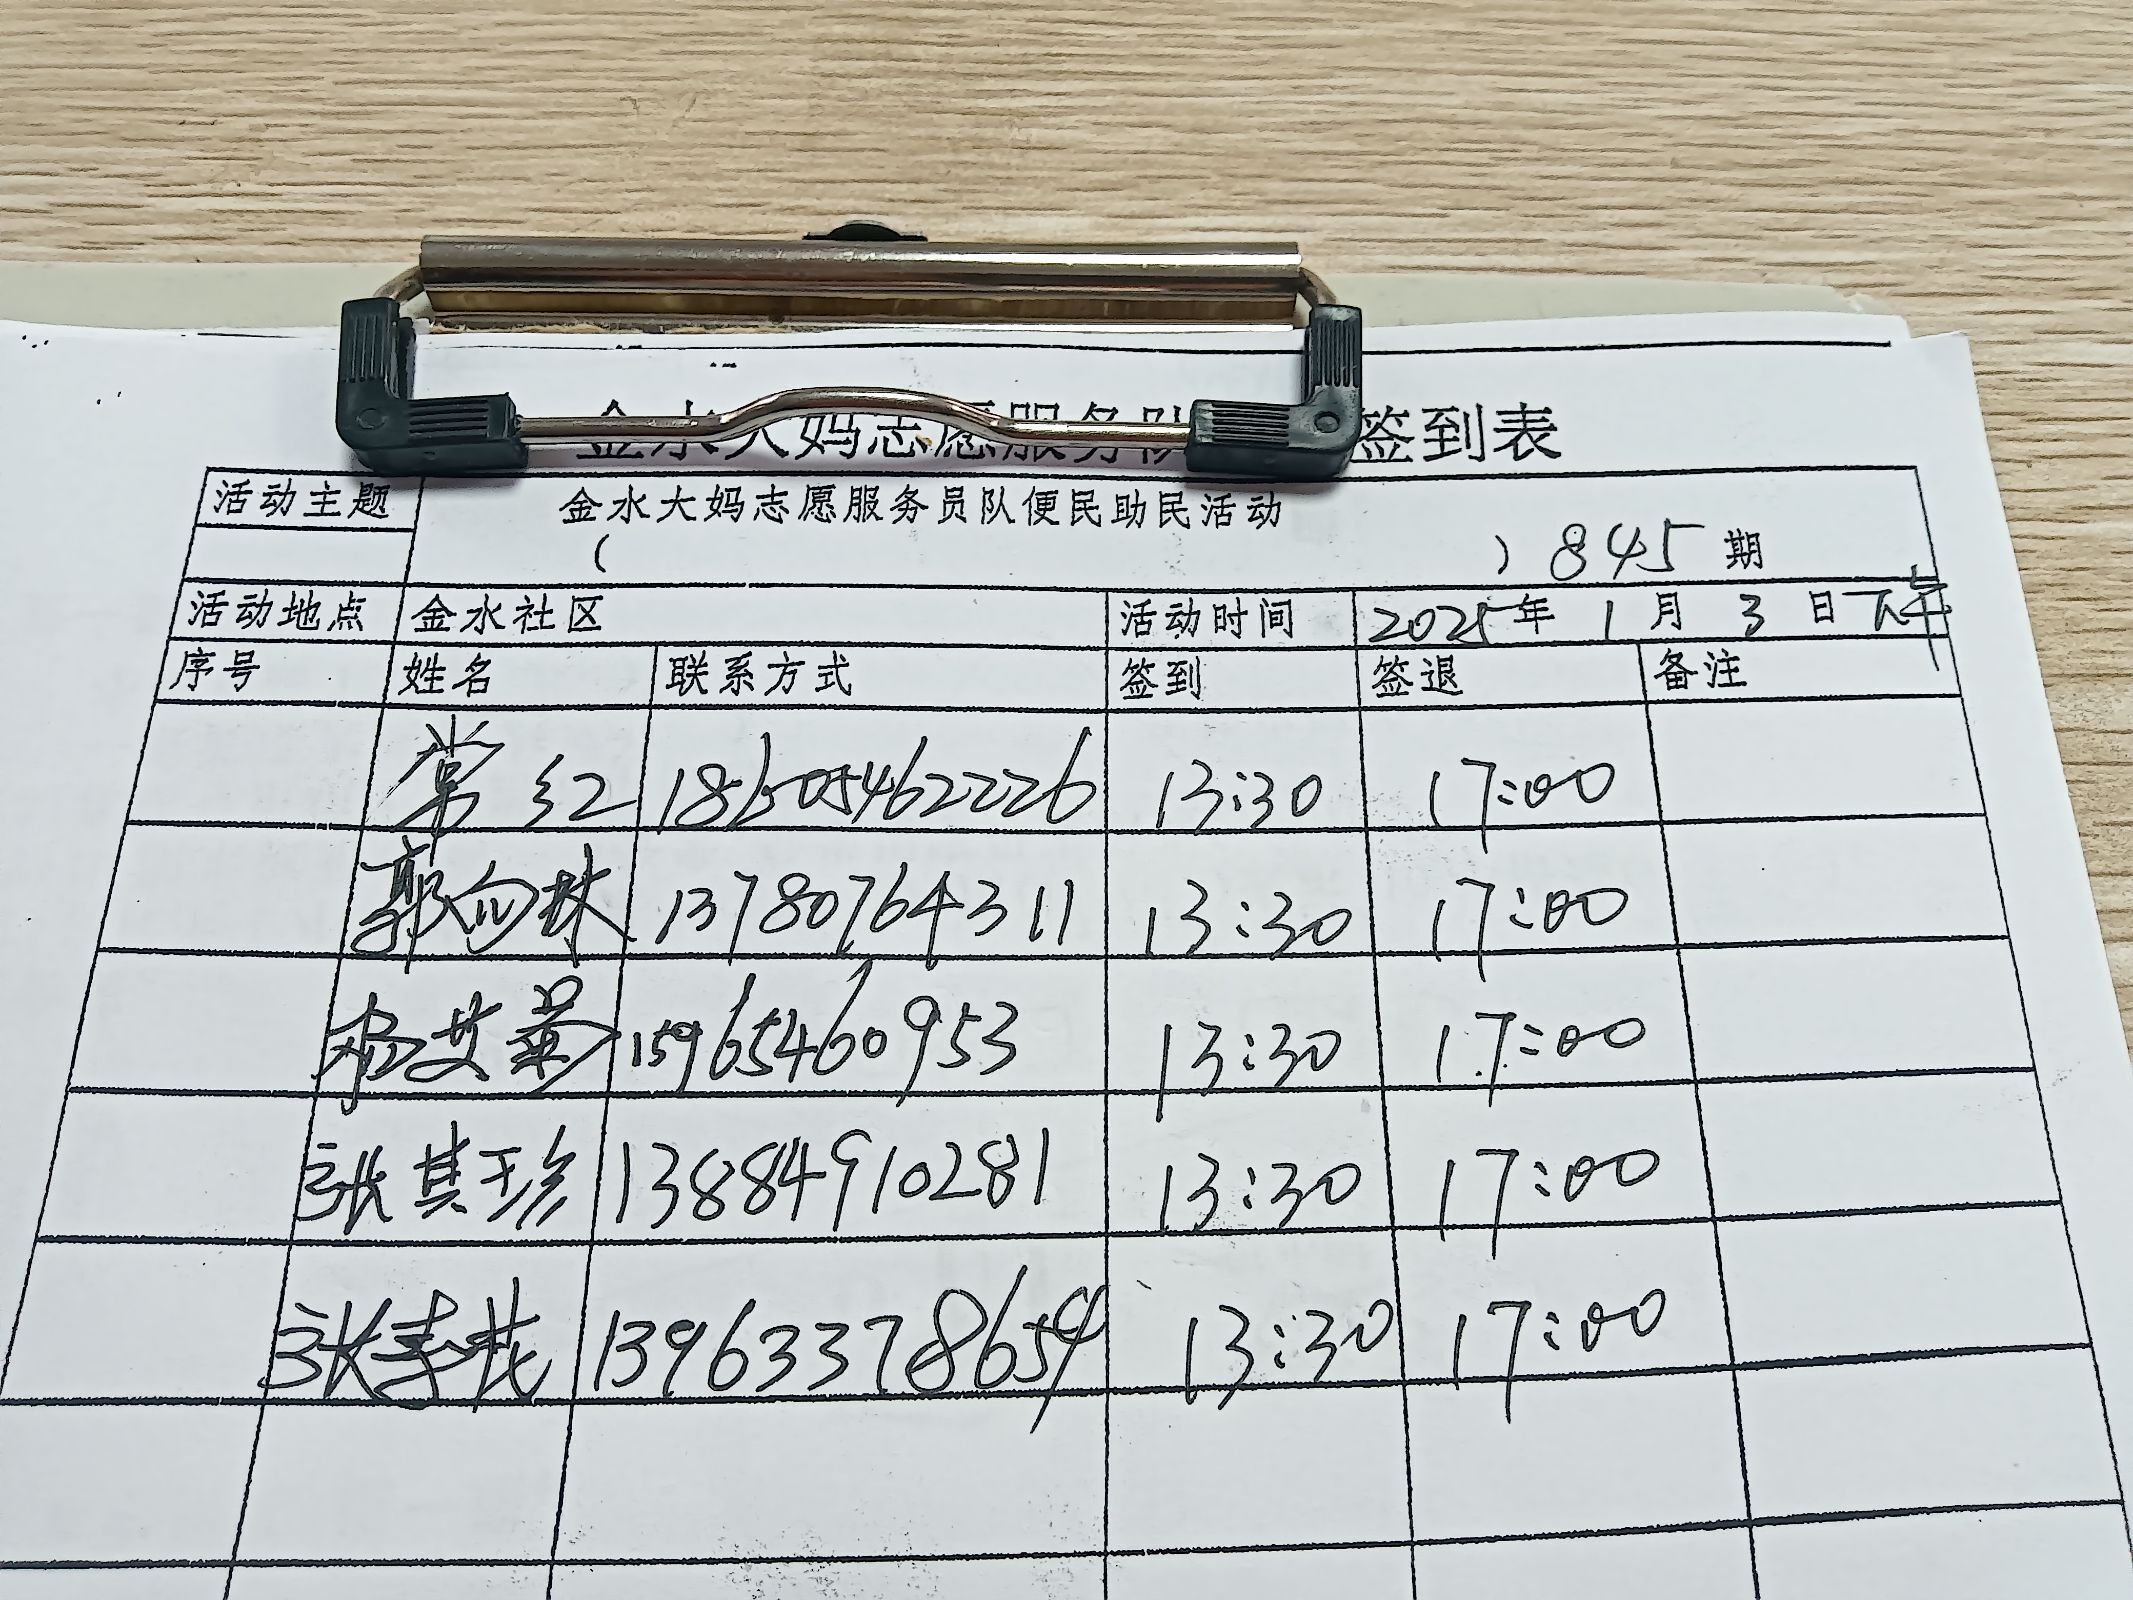 金水大妈志愿服务队 签到表
活动主题 金水大妈志愿服务员队便民助民活动
( ) 845期
活动地点 金水社区 活动时间 2025年1月3日下午
序号 姓名 联系方式 签到 签退 备注
常红 13:30 17:00
郭向珠 13780764311 13:30 17:00
杨艾菊 15965460953 13:30 17:00
张其珍 13884910281 13:30 17:00
张 13963378654 13:30 17:00